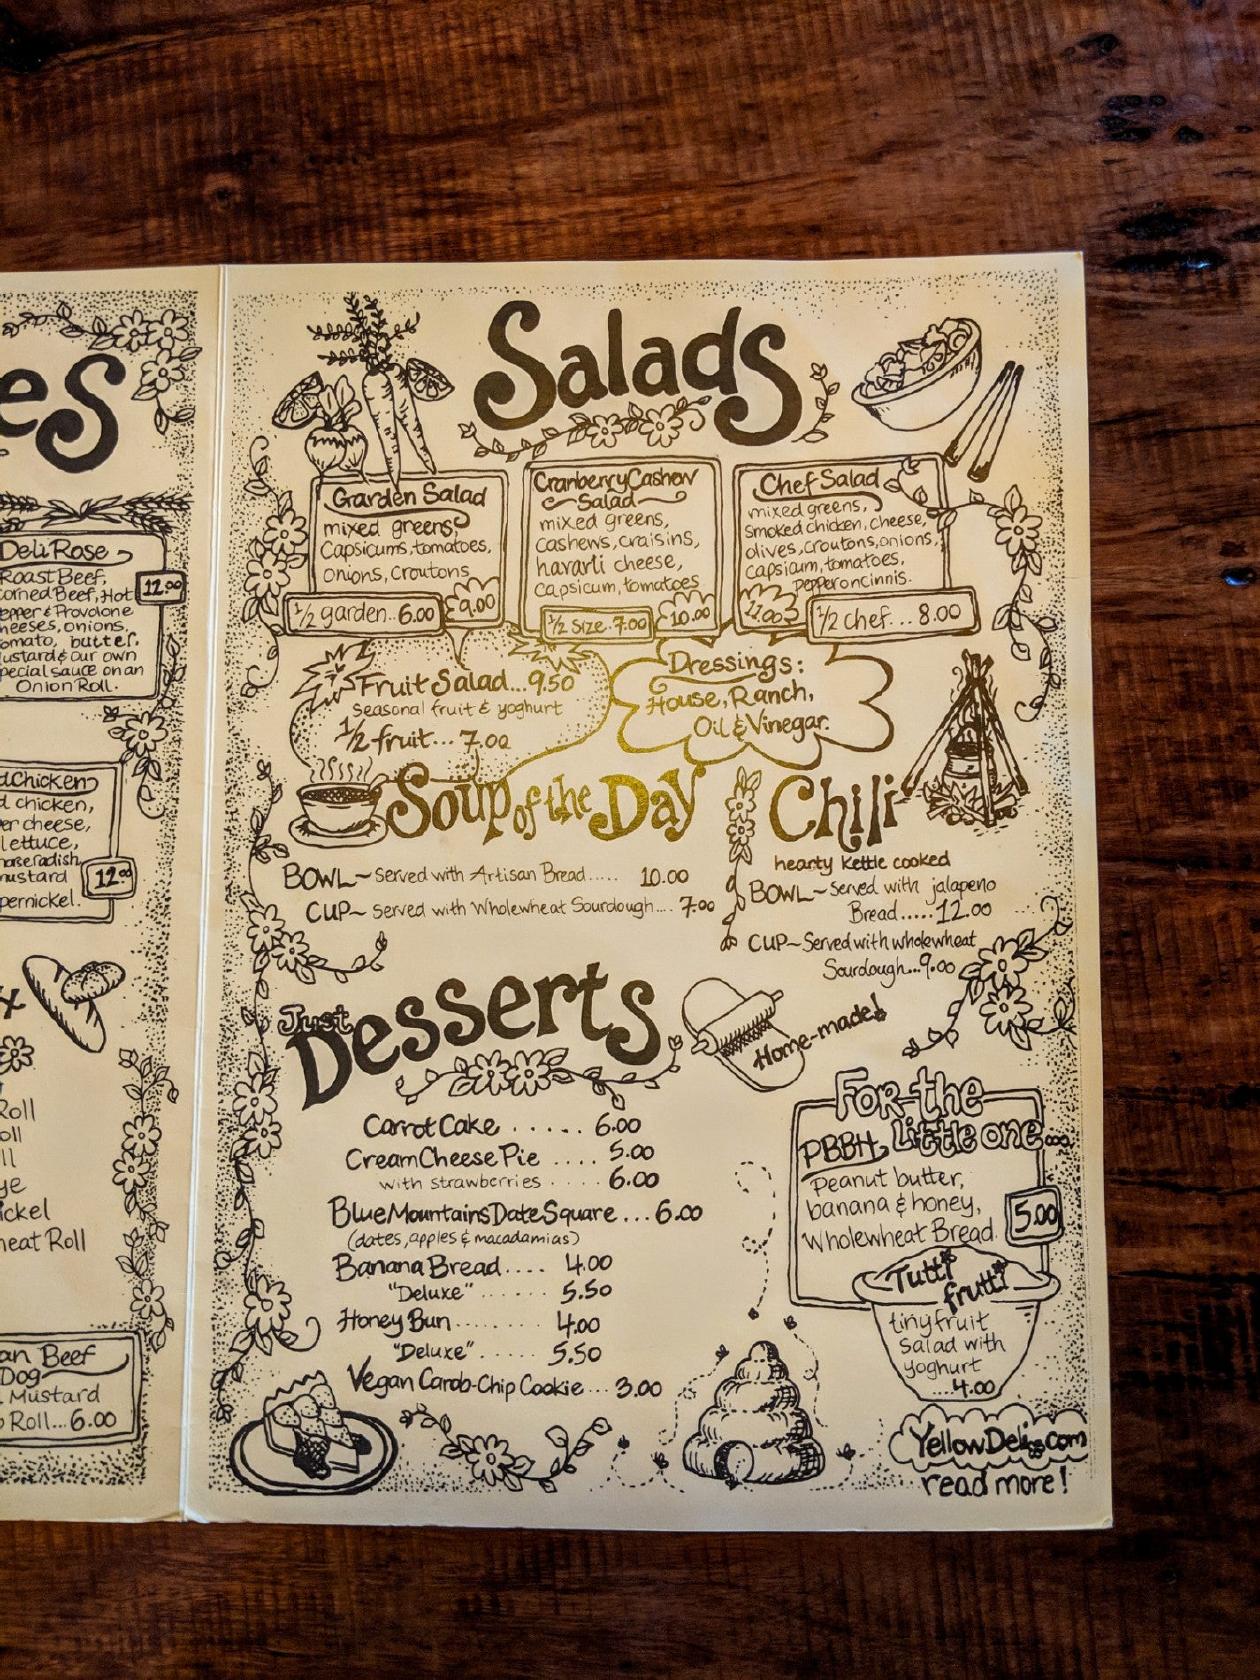 es
Deli Rose
Roast Beef,
Corned Beef, Hot
Pepper & Provolone
cheeses, onions,
tomato, butter,
mustard & our own
special sauce on an
Onion Roll.
12.00
Chicken
chicken,
cheese,
lettuce,
horseradish
mustard
pernickel.
12.00
Roll
oll
ll
ye
ickel
heat Roll
an Beef
Dog
Mustard
Roll...6.00
Salads
Garden Salad
mixed greens,
Capsicums, tomatoes,
Onions, Croutons
9.00
1/2 garden..6.00
Cranberry Cashew
Salad
mixed greens,
cashews, craisins,
havarti cheese,
capsicum, tomatoes
1/2 size..7.00
10.00
Chef Salad
mixed greens,
Smoked chicken, cheese,
olives, croutons, onions,
capsicum, tomatoes,
pepperoncinnis.
1/2 chef...8.00
Fruit Salad...9.50
Seasonal fruit & yoghurt
1/2 fruit...7.00
Dressings:
House, Ranch,
Oil & Vinegar.
Soup of the Day
BOWL~ Served with Artisan Bread..... 10.00
CUP~ Served with Wholewheat Sourdough.... 7.00
Chili
hearty kettle cooked
BOWL~ Served with jalapeno
Bread.....12.00
CUP~ Served with wholewheat
Sourdough...9.00
Just
Desserts
Home-made!
Carrot Cake ...... 6.00
Cream Cheese Pie .... 5.00
with strawberries .... 6.00
Blue Mountains Date Square ...6.00
(dates, apples & macadamias)
Banana Bread.... 4.00
"Deluxe" ...... 5.50
Honey Bun........ 4.00
"Deluxe" ..... 5.50
Vegan Carob-Chip Cookie... 3.00
For the
Little one...
PBBH
Peanut butter,
banana & honey,
Wholewheat Bread.
5.00
Tutti
frutti
tiny fruit
Salad with
yoghurt
....4.00
YellowDeli.com
read more!